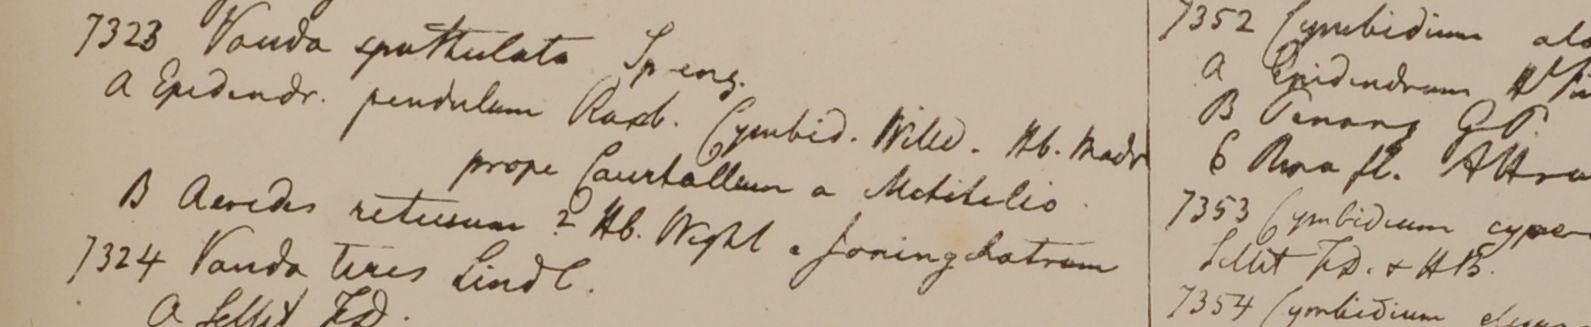 7323 Vanda spathulata Spreng.
A Epidendr. pendulum Roxb. Cymbid. Willd. Hb. Madr
prope Courtallum a
B Aerides retusum? Hb. Wight a
7324 Vanda teres Lindl.
A Sillet FD.
7352 Cymbidium alo
A Epidendrum H
B Penang GP.
6 fl.
7353 Cymbidium cyper
Sillet FD. & HB.
7354 Cymbidium